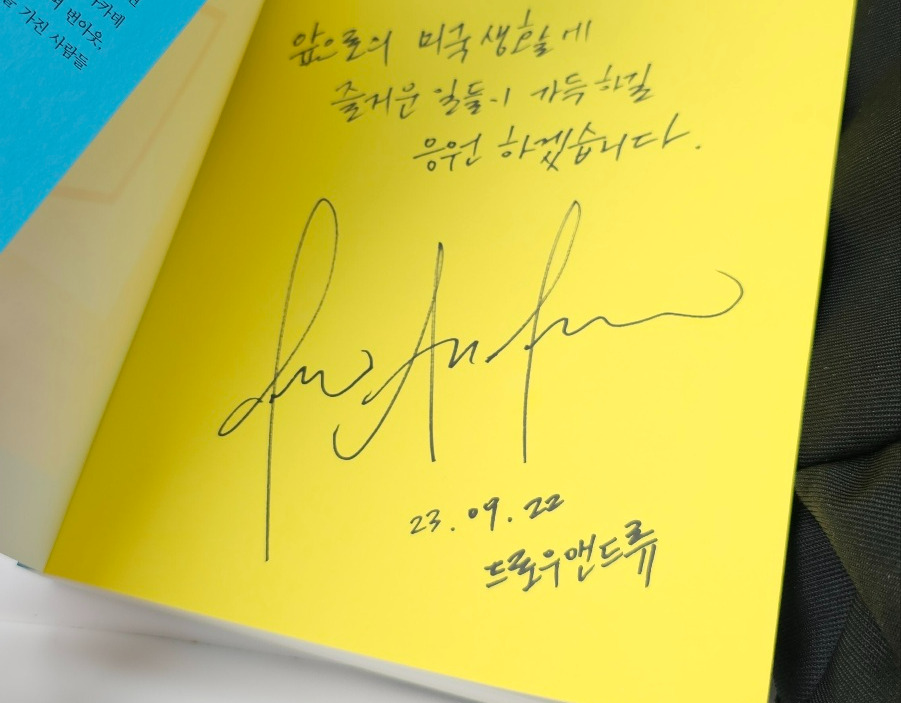 번아웃,
가진 사람들
앞으로의 미국 생활에
즐거운 일들이 가득하길
응원 하겠습니다.
23.09.22
드로우앤드류